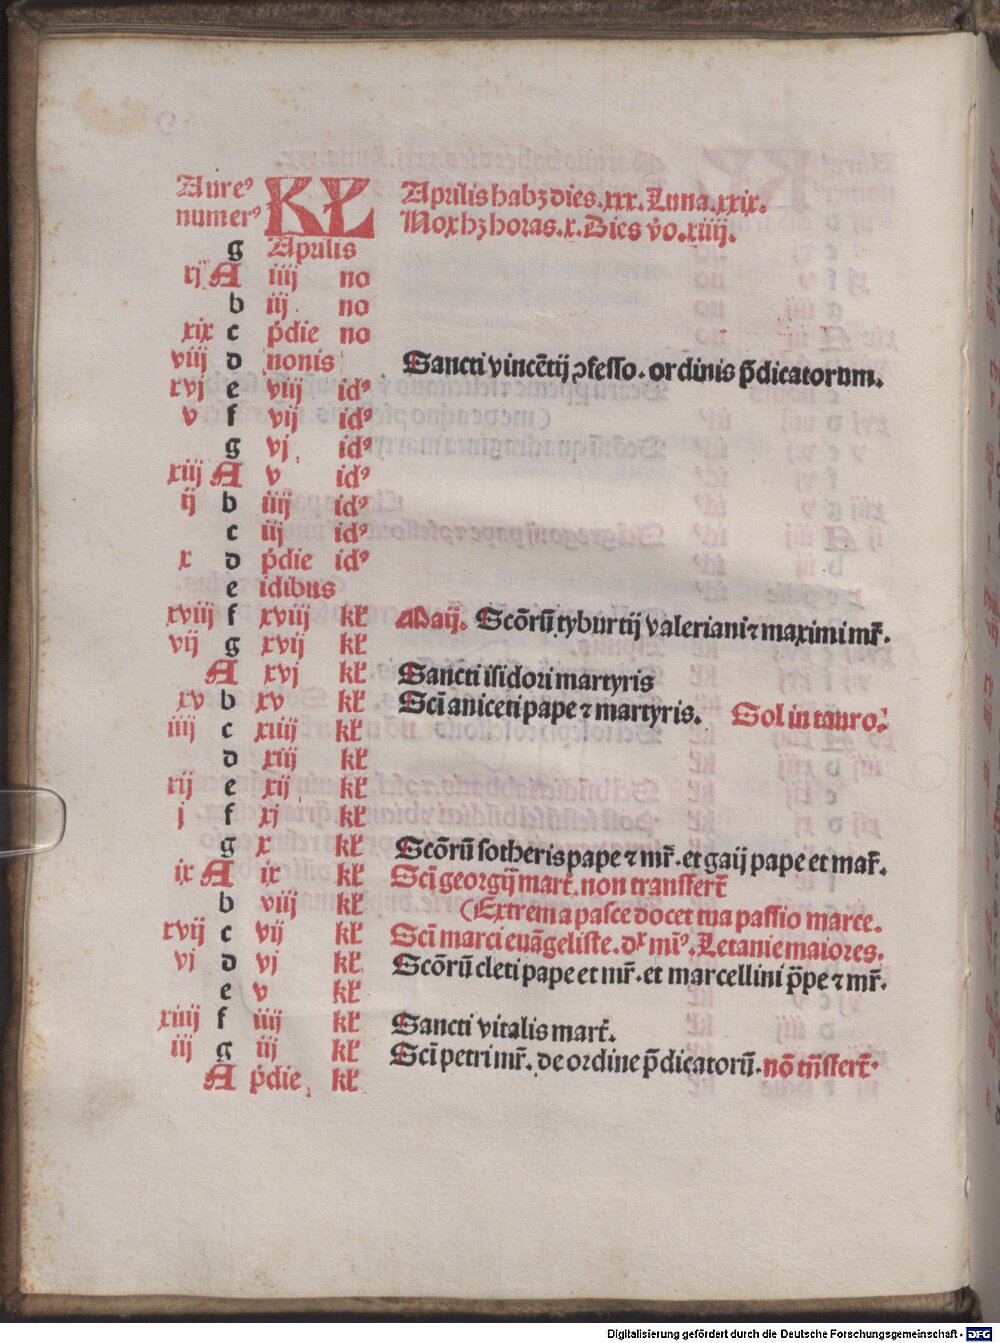 Aureꝰ KL Aprilis habꝫ dies .xxx. Luna .xxix.
numerꝰ Nox hꝫ horas .x. Dies v̊o .xiiij.
g Aprilis
xj A iiij no
b iij no
xix c p̄die no
viij d nonis Sancti vincētij ꝯfesso. ordinis p̄dicatorum.
xvj e viij idꝰ
v f vij idꝰ
g vj idꝰ
xiij A v idꝰ
ij b iiij idꝰ
c iij idꝰ
x d p̄die idꝰ
e idibus
xviij f xviij kł Maij. Scōrū tyburtij valeriani ⁊ maximi mr̄.
vij g xvij kł
A xvj kł Sancti isidori martyris
xv b xv kł Scī aniceti pape ⁊ martyris. Sol in tauro.
iiij c xiiij kł
d xiij kł
xij e xij kł
j f xj kł
g x kł Scōrū sotheris pape ⁊ mr̄. et gaij pape et mar̄.
ix A ix kł Scī georgij mart̄. non transfert̄
b viij kł (Extrema pasce docet tua passio marce.
xvij c vij kł Scī marci euāgeliste. dr̄ miꝰ. Letanie maiores.
vj d vj kł Scōrū cleti pape et mr̄. et marcellini p̄pe ⁊ mr̄.
e v kł
xiiij f iiij kł Sancti vitalis mart̄.
iij g iij kł Scī petri mr̄. de ordine p̄dicatorū. nō trāsfert̄
A p̄die kł
Digitalisierung gefördert durch die Deutsche Forschungsgemeinschaft - DFG